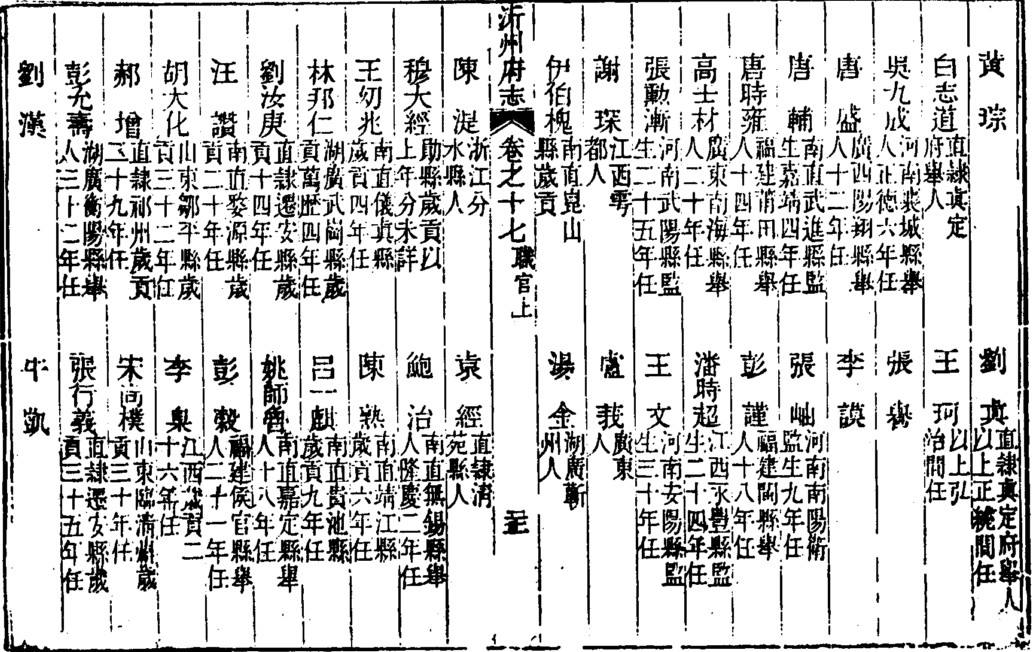 黃琮
劉真 直隸真定府舉人以上正統間任
白志道 直隸真定府舉人
王珂 以上弘治間任
吳九成 河南襄城縣舉人正德六年任
張舉
唐盛 廣西陽朔縣舉人十二年任
李謨
唐輔 南直武進縣監生嘉靖四年任
張岫 河南南陽衛監生九年任
唐時雍 福建莆田縣舉人十四年任
彭謹 福建閩縣舉人十八年任
高士材 廣東南海縣舉人二十年任
潘時超 江西永豐縣監生二十四年任
張勳漸 河南武陽縣監生二十五年任
王文 河南安陽縣監生三十年任
謝琛 江西雩都人
盧莪 廣東人
伊伯槐 南直崑山縣歲貢
湯金 湖廣蘄州人
沂州府志 卷之十七 職官上
陳湜 浙江分水縣人
袁經 直隸清苑縣人
穆大經 縣歲貢以上年分未詳
鮑治 南直無錫縣舉人隆慶二年任
王幼兆 南直儀真縣歲貢四年任
陳熟 南直靖江縣歲貢六年任
林邦仁 湖廣武岡縣歲貢萬歷四年任
呂一麒 南直貴池縣歲貢九年任
劉汝庚 直隸遷安縣歲貢十四年任
姚師魯 南直嘉定縣舉人十八年任
汪讚 南直婺源縣歲貢二十年任
彭穀 福建侯官縣舉人二十一年任
胡大化 山東鄒平縣歲貢三十二年任
李臬 江西歲貢二十六年任
郝增 直隸祁州歲貢二十九年任
宋尚樸 山東臨清州歲貢三十年任
彭允壽 湖廣衡陽縣舉人三十二年任
張行義 直隸遷安縣歲貢三十五年任
劉漢
牛凱